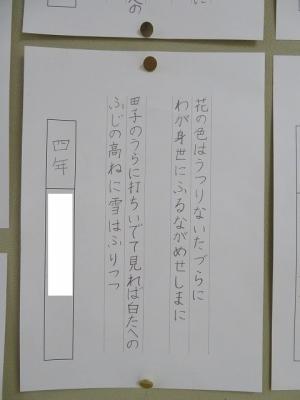 花の色はうつりないたづらに
わが身世にふるながめせしまに
田子のうらに打ちいでて見れは白たへの
ふじの高ねに雪はふりつつ
四年